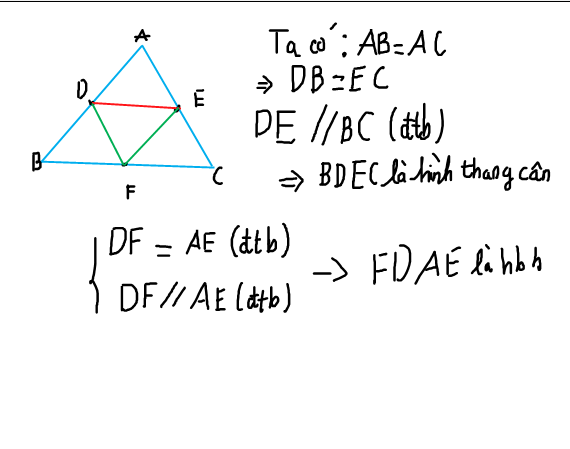 A
D
E
B
C
F
Ta có: AB=AC
⇒ DB=EC
DE // BC (đtb)
⇒ BDEC là hình thang cân
DF = AE (đtb)
DF // AE (đtb)
→ FDAE là hbh